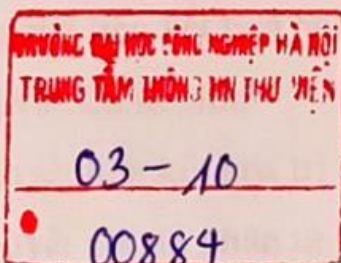 TRƯỜNG ĐẠI HỌC CÔNG NGHIỆP HÀ NỘI
TRUNG TÂM THÔNG TIN THƯ VIỆN
03 - 10
00884